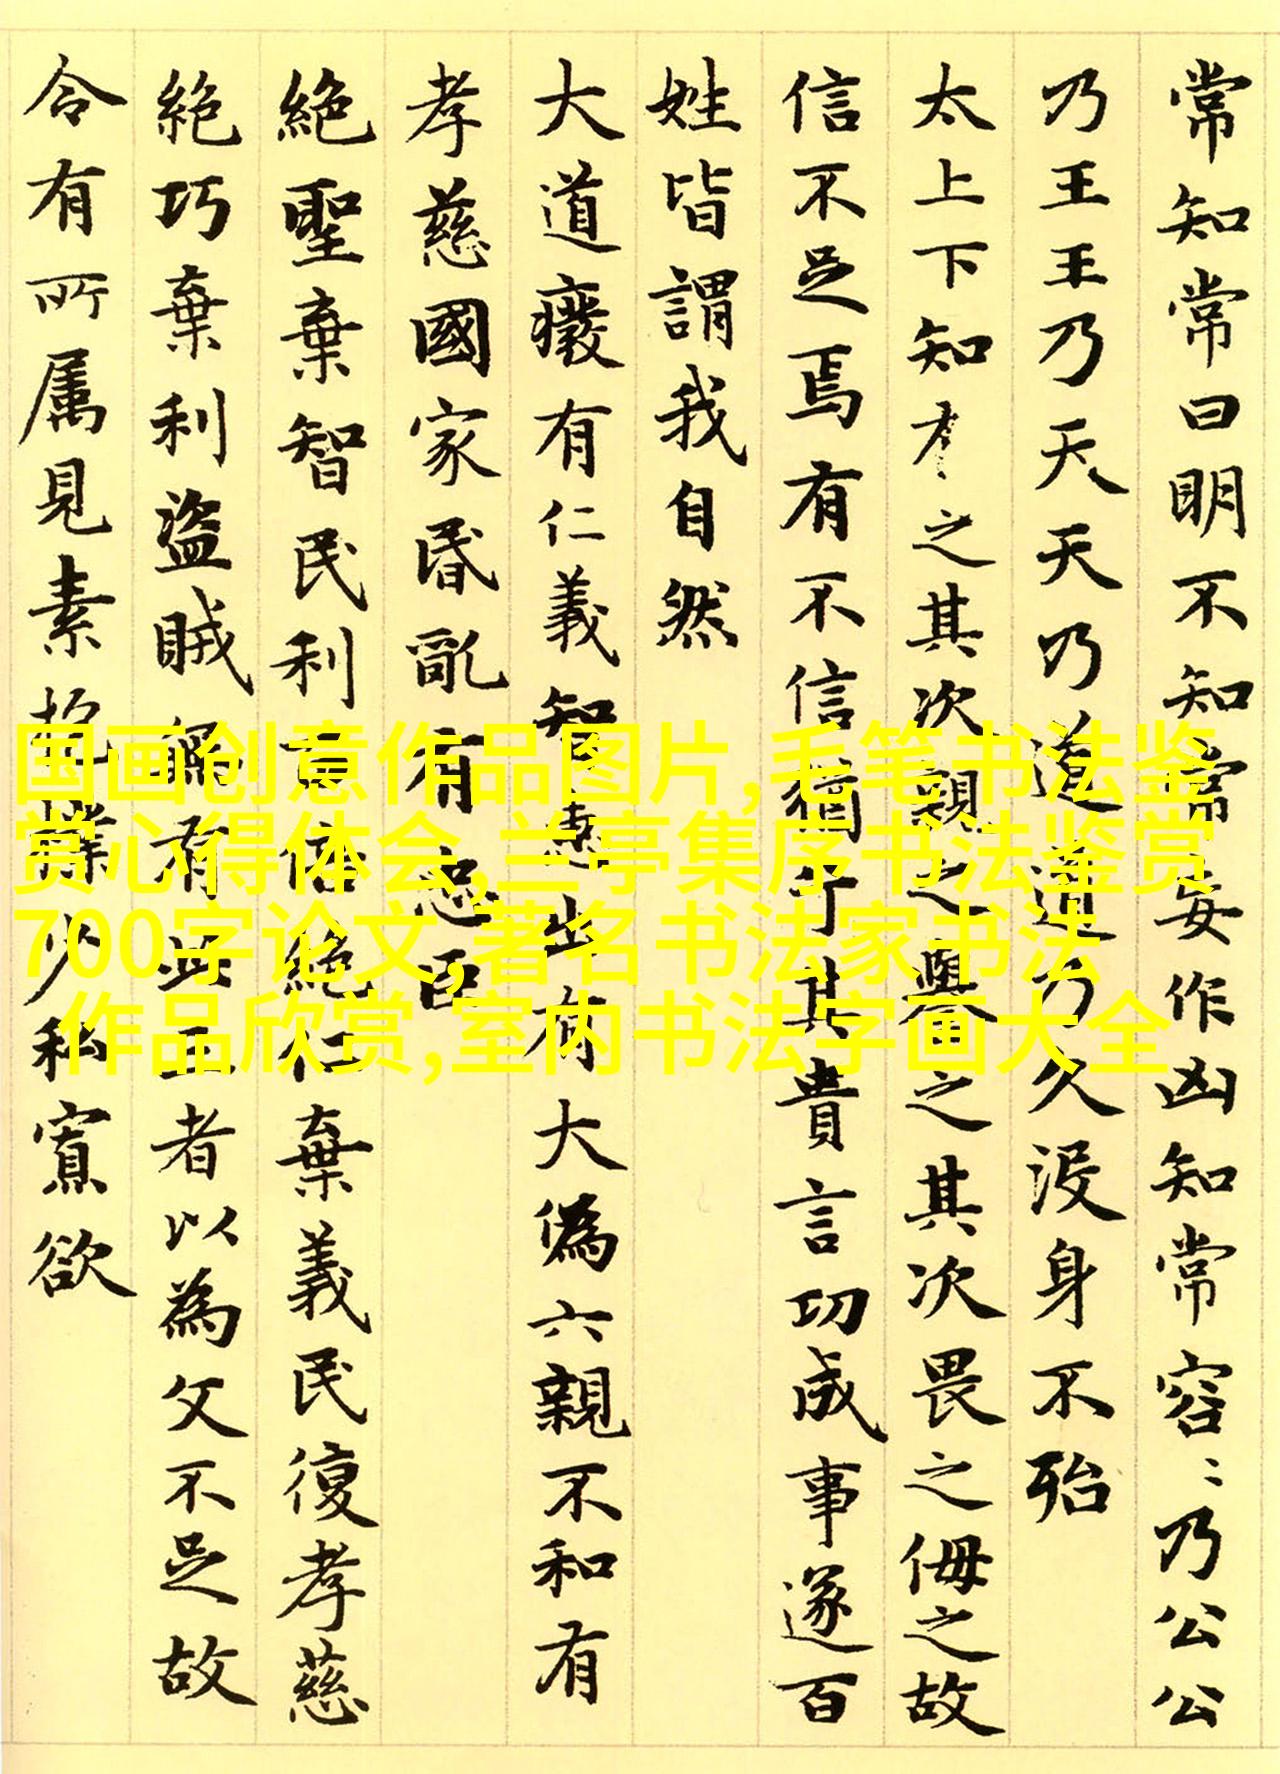 常知常曰明不知常妄作凶知常容〻乃公公
乃王王乃天天乃道道乃久没身不殆
太上下知有之其次親之譽之其次畏之侮之故
信不足焉有不信猶乎其貴言功成事遂百
姓皆謂我自然
大道癈有仁義智惠出有大偽六親不和有
孝慈國家昬亂有忠臣
絶聖棄智民利百倍絶仁棄義民復孝慈
絶巧棄利盗賊無有此三者以為文不足故
令有所属見素抱撲少私寡欲
国画创意作品图片,毛笔书法鉴
赏心得体会,兰亭集序书法鉴赏
700字论文,著名书法家书法
作品欣赏,室内书法字画大全